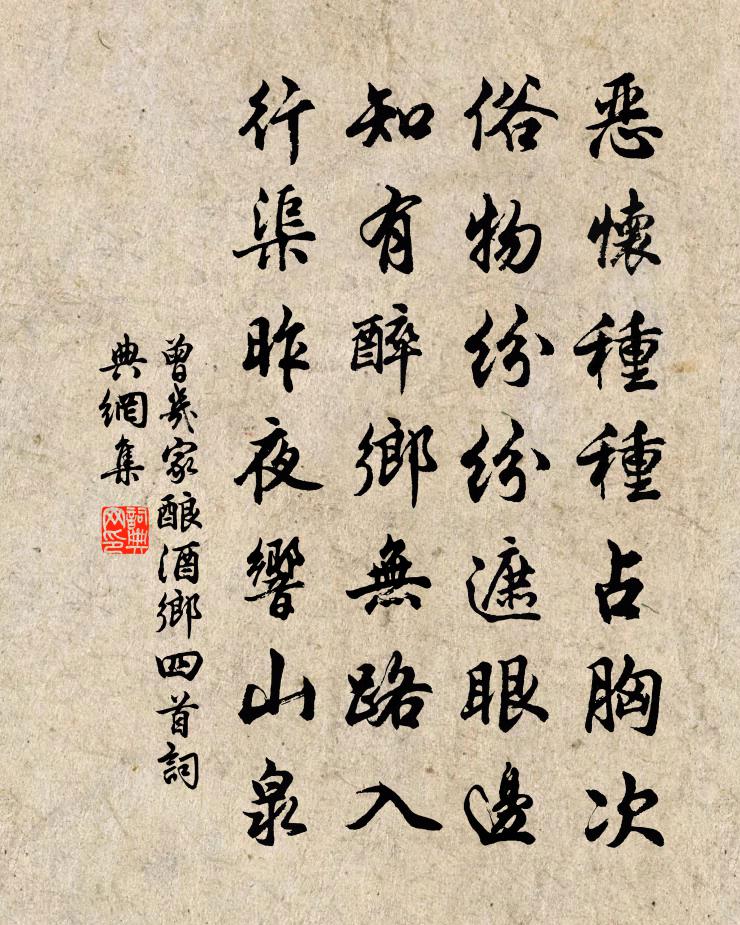 惡懷種種占胸次
俗物紛紛遮眼邊
知有醉鄉無路入
行渠昨夜響山泉
曾幾家酿酒鄉四首詞
典網集
詞典
网印